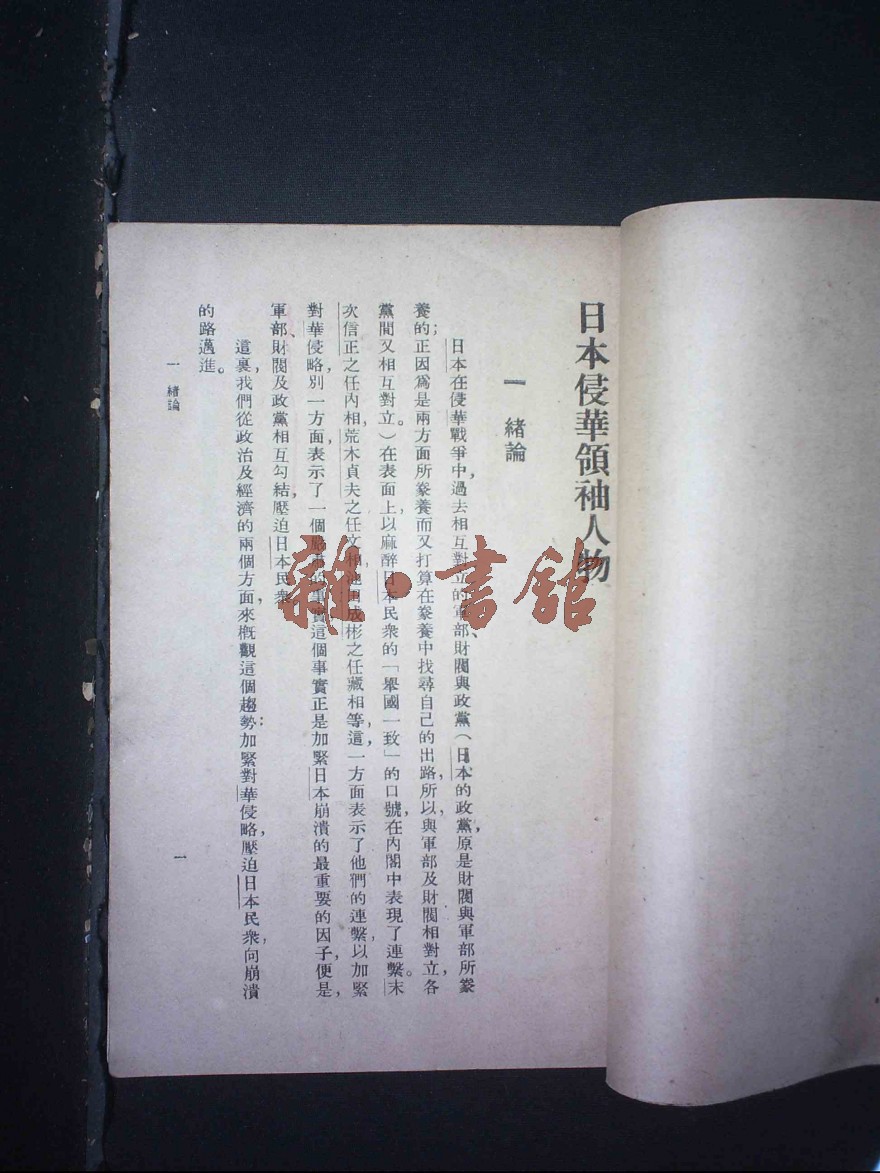 日本侵華領袖人物
一 緒論
日本在侵華戰爭中，過去相互對立的軍部、財閥與政黨（日本的政黨，原是財閥與軍部所豢
養的；正因爲是兩方面所豢養而又打算在豢養中找尋自己的出路，所以，與軍部及財閥相對立，各
黨間又相互對立。）在表面上以麻醉日本民衆的「舉國一致」的口號，在內閣中表現了連繫。末
次信正之任內相，荒木貞夫之任文相，池田成彬之任藏相等，這一方面表示了他們的連繫，以加緊
對華侵略，別一方面，表示了一個 的事實，這個事實正是加緊日本崩潰的最重要的因子，便是，
軍部、財閥及政黨相互勾結，壓迫日本民衆。
這裏，我們從政治及經濟的兩個方面來槪觀這個趨勢：加緊對華侵略，壓迫日本民衆，向崩潰
的路邁進。
一 緒論
一
雜·書館